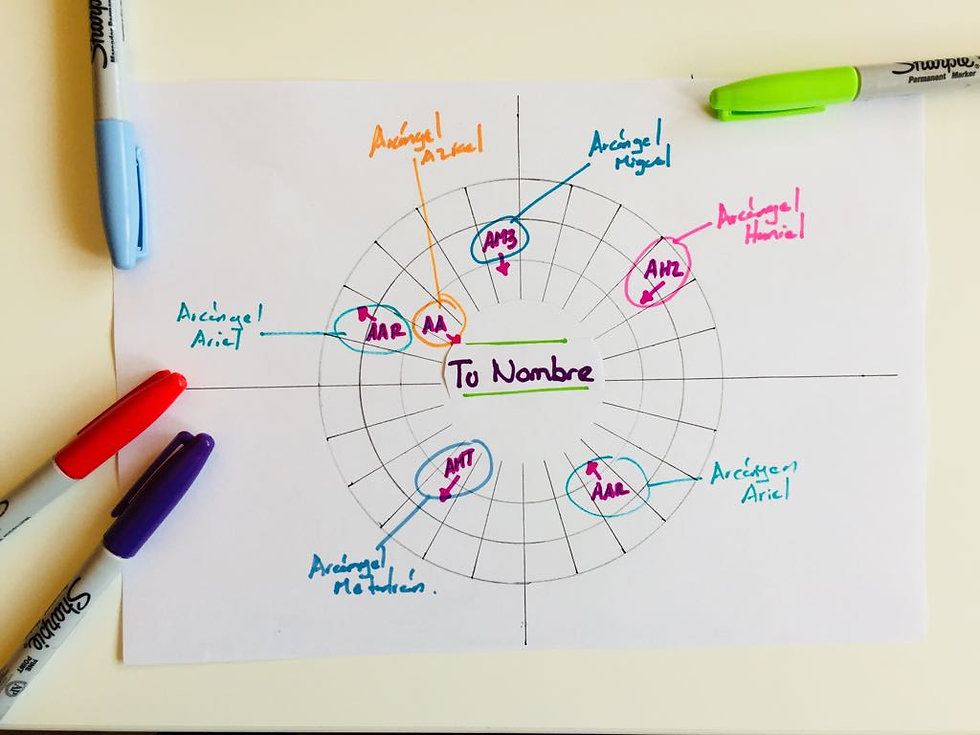 Sharpie
Sharpie
Permanent Marker
Arcángel
Azrael
Arcángel
Miguel
Arcángel
Haniel
AM3
AHZ
Arcángel
Ariel
AAR
AA
Tu Nombre
AMT
AAR
Arcángen
Ariel
Arcángel
Metatrón.
Sharpie
FINE
POINT
AP